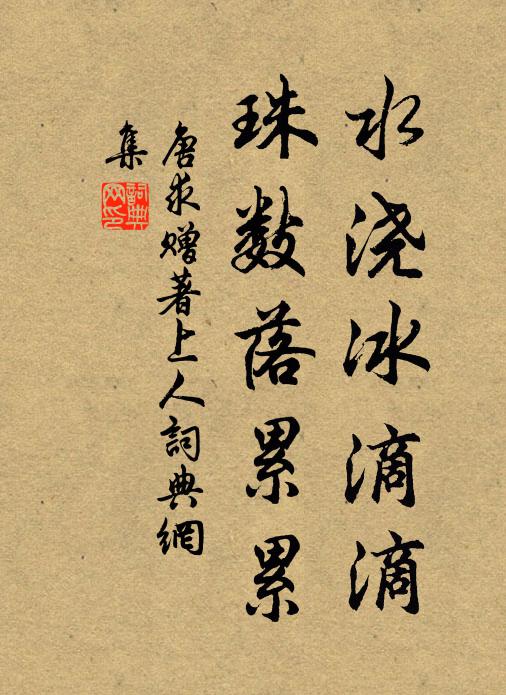 水浇冰滴滴
珠数落累累
唐求赠著上人詞典網
集
詞典
网印